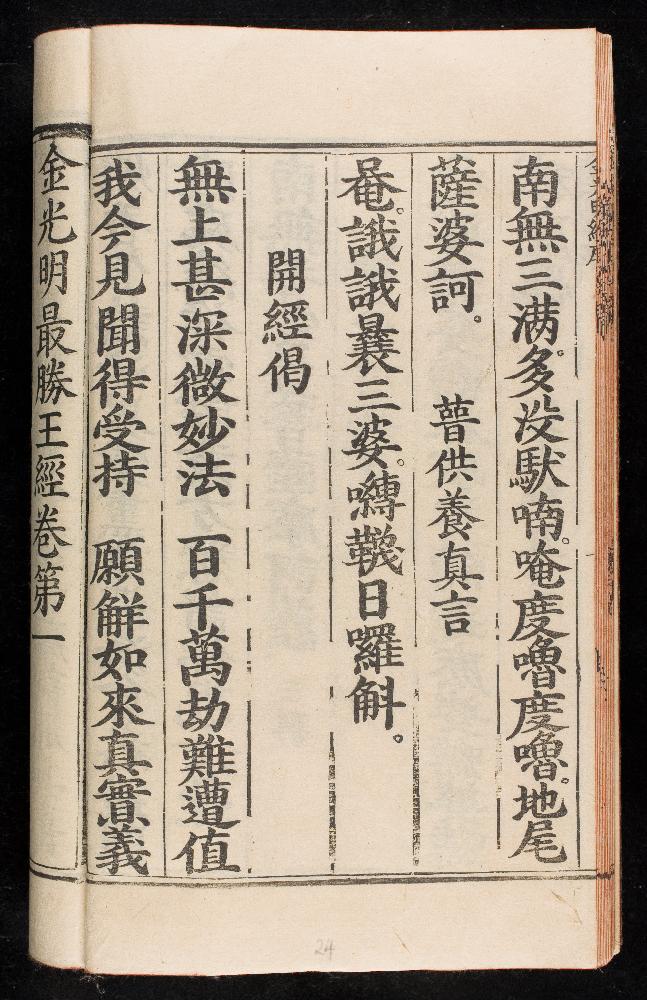 南無三满。多没馱喃。唵度嚕度嚕。地尾
薩婆訶。　普供養真言
菴。誐誐曩三婆。嚩韈日囉斛。
開經偈
無上甚深微妙法　百千萬劫難遭值
我今見聞得受持　願解如來真實義
金光明最勝王經卷第一
24